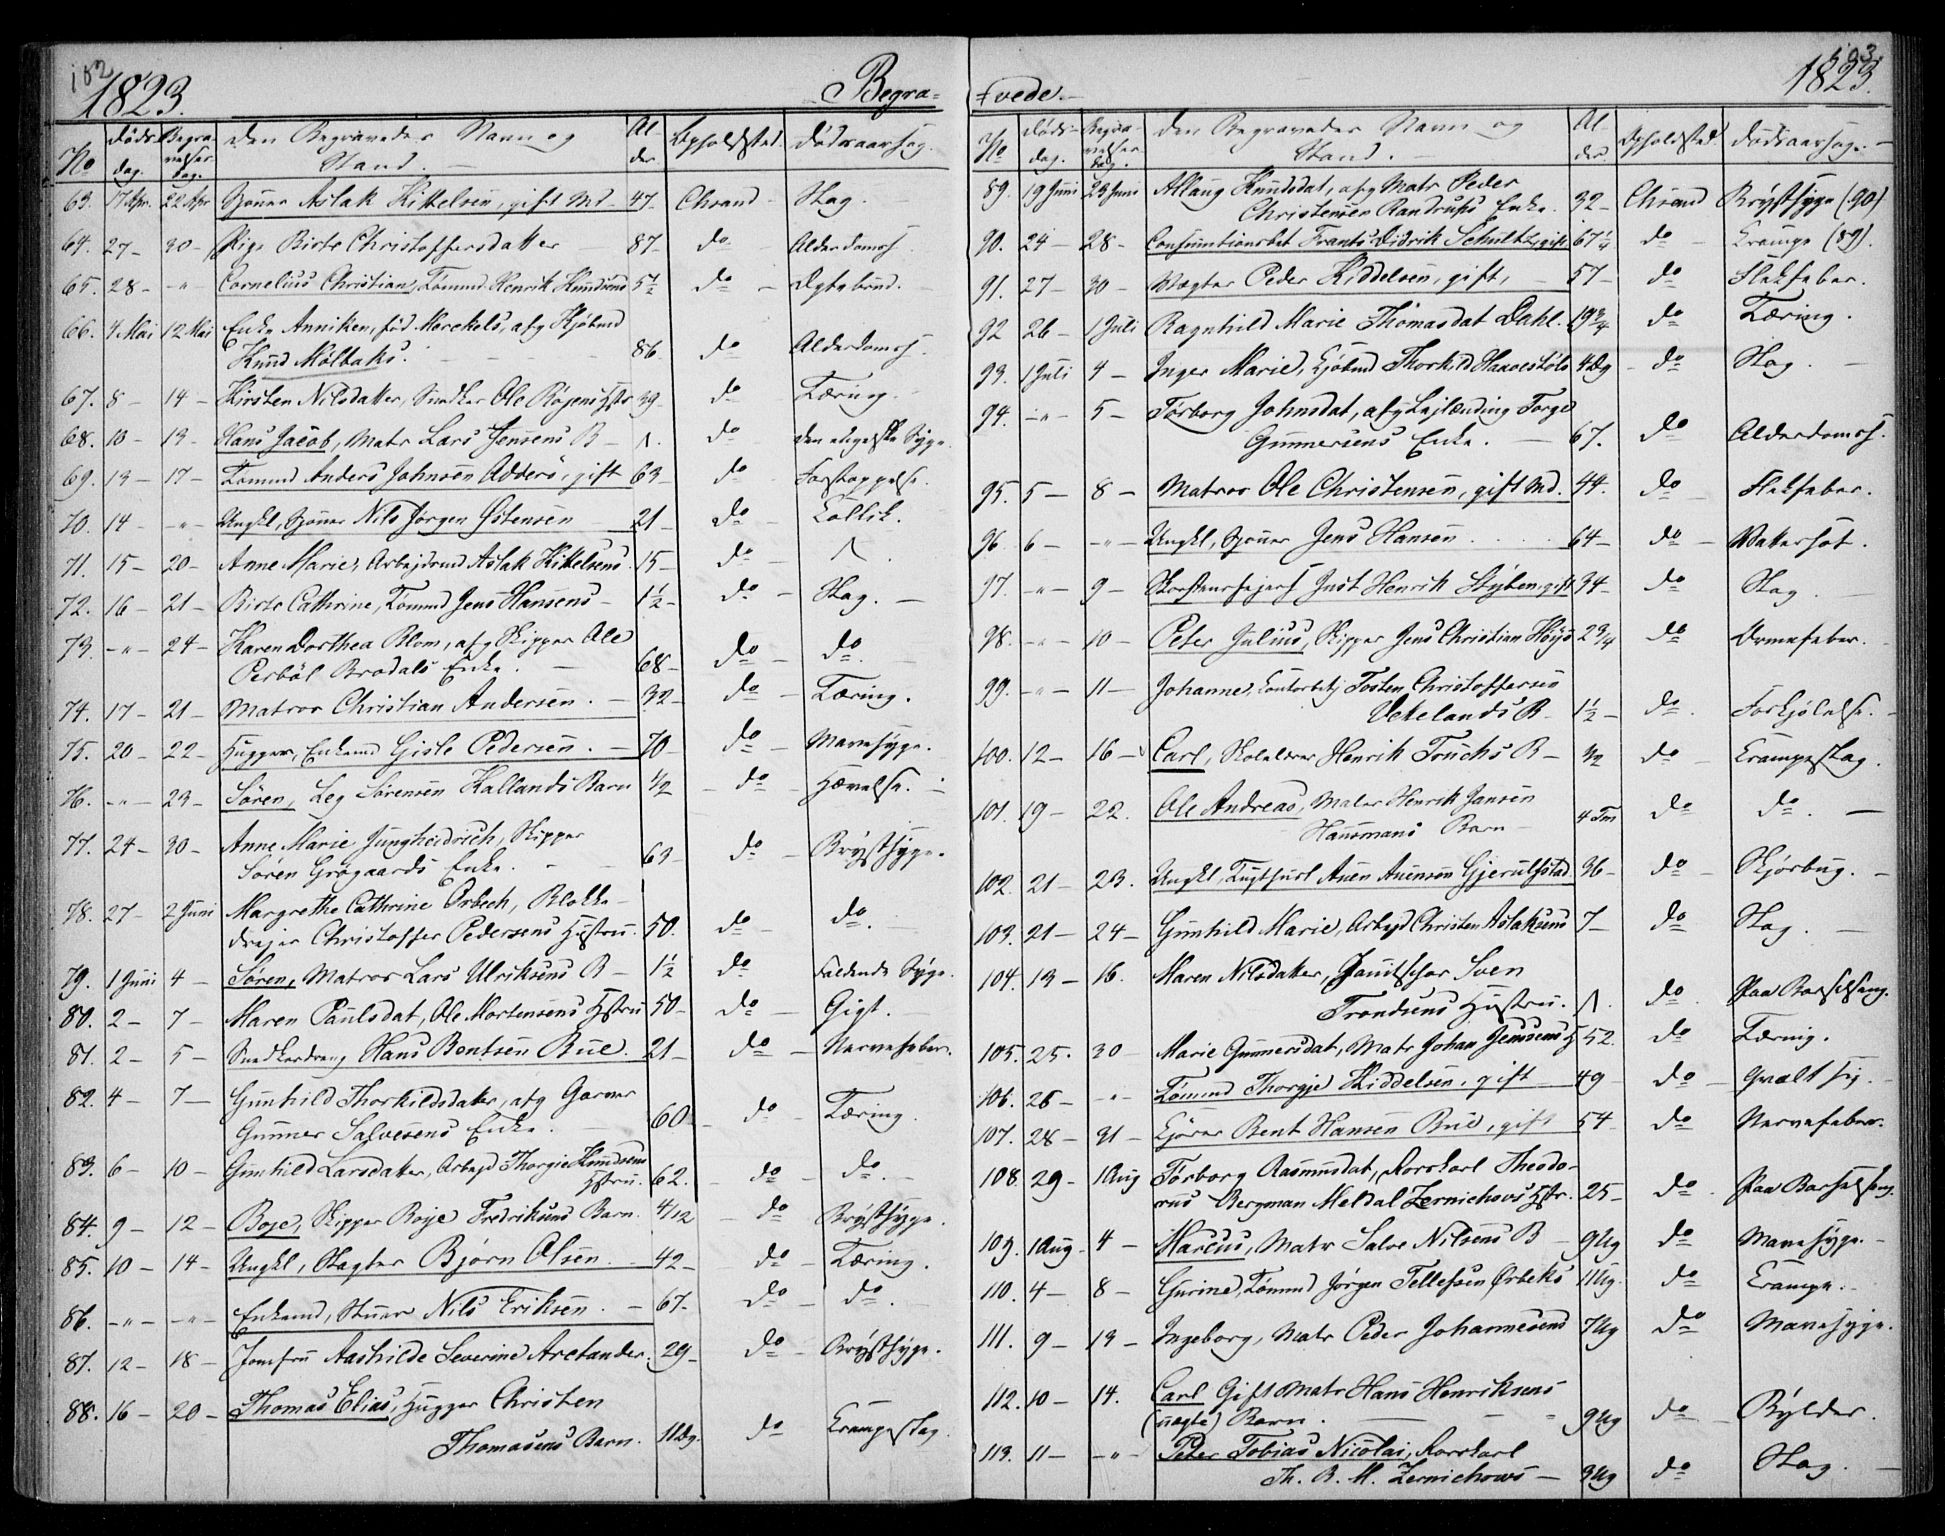 182
1823.
Begra-
No
Døds-
dag.
Begra-
velses
dag.
Den Begravedes Navn og
Stand.
Al-
der
Opholdsted.
Dødsaarsag.
63. 17 Apr. 22 Apr Aslak Kittelsen, gift Md 47 Chrsand Slag.
64. 27 - 30 - Pige Birte Christoffersdatter 87 do Alderdomss.
65. 28 - " - Cornelius Christian, Tømmd Henrik Knudsens 5½ do
66. 7 Mai 12 Mai Enke Anniken, fød Merckels, afg Kjøbmd
Knud Møltaks. 86. do Alderdomss.
67. 8 - 14 - Kirsten Nilsdatter, Snedker Ole Røgens Hstr 39 do Tæring.
68. 10 - 13 - Hans Jacob, Matr Lars Jensens B - 1. do den engelske Syge.
69. 13 - 17 - Tømmd Anders Johnsen Odderø, gift 63 do Forstoppelse.
70. 14 - " - Ungkl, Nils Jørgen Østensen 21 do Collik.
71. 15 - 20 - Anne Marie, Arbejdsmd Aslak Kittelsens 15 - do
72. 16 - 21 - Birte Cathrine, Tømmd Jens Hansens - 1½ - do Slag.
73. - " - 24 - Karen Dorthea Blom, afg Skipper Ole
Perbøl Brodals Enke. 68 - do do.
74. 17 - 21 - Matros Christian Andersen. - 32 - do Tæring.
75. 20 - 22 - Hugger, Enkemd Gisle Pedersen. - 70 do Mavesyge.
76. - " - 23 - Søren, Leg Sørensen Kallands Barn ½ do Hævelse.
77. 24 - 30 - Anne Marie Jungheidrich, Skipper
Søren Grøgaards Enke. 63 do Brystsyge.
78. 27 - 2 Juni Margrethe Cathrine Orbech, Blokke-
drejer Christoffer Pedersens Hustru. 50. do do.
79. 1 Juni 4 - Søren, Matros Lars Ulriksens B - 1½ do Faldende Syge.
80. 2 - 7 - Maren Paulsdat, Ole Mortensens Hstru 50 - do Gigt.
81. 2 - 5 - Snedkerdreng Hans Bentsen Bue. 21 - do Nervefeber.
82. 4 - 7 - Gunhild Thorkildsdatter, afg Garver
Gunner Salvesens Enke. 60 do Tæring.
83. 6 - 10 - Gunhild Larsdatter, Arbejd Thorgie Knudsens
Hstru. 62. do do.
84. 9 - 12 - Boje, Skipper Boje Fredriksens Barn. 4/12 do Brystsyge.
85. 10 - 14 - Ungkl, Slagter Bjørn Olsen. 42 - do Tæring.
86. - " - - " - Enkemd, Stuer Nils Eriksen. - 67 - do do.
87. 12 - 18 - Jomfru Aashilde Severine Arctander. 29 - do Brystsyge.
88. 16 - 20 - Thomas Elias, Hugger Christen
Thomasens Barn. 11 Dg. do Krampeslag.
vede.
1823.
No
Døds-
dag.
Begra-
velses
dag.
Den Begravedes Navn og
Stand.
Al-
der
Opholdsted
Dødsaarsag.
89. 19 Juni 23 Juni Allaug Knudsdat, afg Matr Peder
Christensen Randrups Enke. 32 - Chrsand Brystsyge (90)
90. 24 - 28 - Consumtionsbet Frants Didrik Schultz, gift 67¼ do Krampe (89).
91. 27 - 30 - Vægter Peder Kiddelsen, gift, 57 - do Flekfeber.
92 26 - 1 Juli Ragnhild Marie Thomasdat Dahl. 19¾ do Tæring.
93. 1 Juli 4 - Inger Marie, Kjøbmd Thorkild Haavestøls 4 Dg - do Slag.
94. - " - 5 - Torborg Johnsdat, afg Lejlænding Torge
Gunnersens Enke. 67. do Alderdomss.
95. 5 - 8 - Matros Ole Christensen, gift Md. 44. do Flekfeber.
96 6 - - " - Ungkl, Jens Hansen 64 - do Vattersot.
97. - " - 9 - Skorstensfejers Just Henrik Styben, gift 34 - do Slag
98. - " - 10 - Peter Julius, Skipper Jens Christian Høys 2¾ do Ormefeber.
99. - " - 11 - Johanne, Contorbetj Tosten Christoffersen
Vekelands B. 1½ - do. Forkjølelse.
100. 12 - 16 - Carl, Skolelærer Henrik Touchs B - do Krampeslag.
101. 19 - 22. Ole Andreas, Maler Henrik Jansen
Hausmans Barn - 4 Tm do do.
102. 21 - 23. Ungkl, Tugthusf Auen Auensen Gjerulfstad 36 - do Skjørbug.
103. 21 - 24 - Gunhild Marie, Arbejd Christen Aslaksens 7 - do Slag.
104. 13 - 16. Maren Nilsdatter, Janitschar Sven
Trondsens Hustru. do Paa Barselseng.
105. 25. 30 - Marie Gunnersdat, Matr Johan Jensens H 52. do Tæring.
106. 26 - - " - Tømmd Thorgje Kiddelsen, gift 49 - do
107. 28 - 31 - Kjører Bent Hansen Bue, gift 54 - do Nervefeber.
108. 29 - 1 Aug Torborg Rasmusdat, Korskarl Theodo-
rus Bergman Meldal Zernichows Hstr. 25 - do Paa Barselseng.
109. 1 Aug. 4 - Marcus, Matr Salve Nilsens B 9 Ug do Mavesyge.
110. 4 - 8 - Gurine, Tømmd Jørgen Tellefsen Ørbeks 11 Ug. do Krampe.
111. 9 - 13 - Ingeborg, Matr Peder Johannesens 7 Ug do Mavesyge.
112. 10 - 14. Carl Gift Matr Hans Henriksens
(uægte) Barn. 9 Ug do Bylder.
113. 11 - - " - Peter Tobias Nicolai, Korskarl
Th. B. M. Zernichows - 3 Ug do Slag.